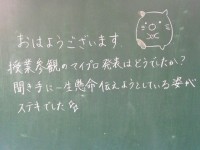 おはようございます
授業参観のマイプロ発表はどうでしたか?
聞き手に一生懸命伝えようとしている姿が
ステキでした